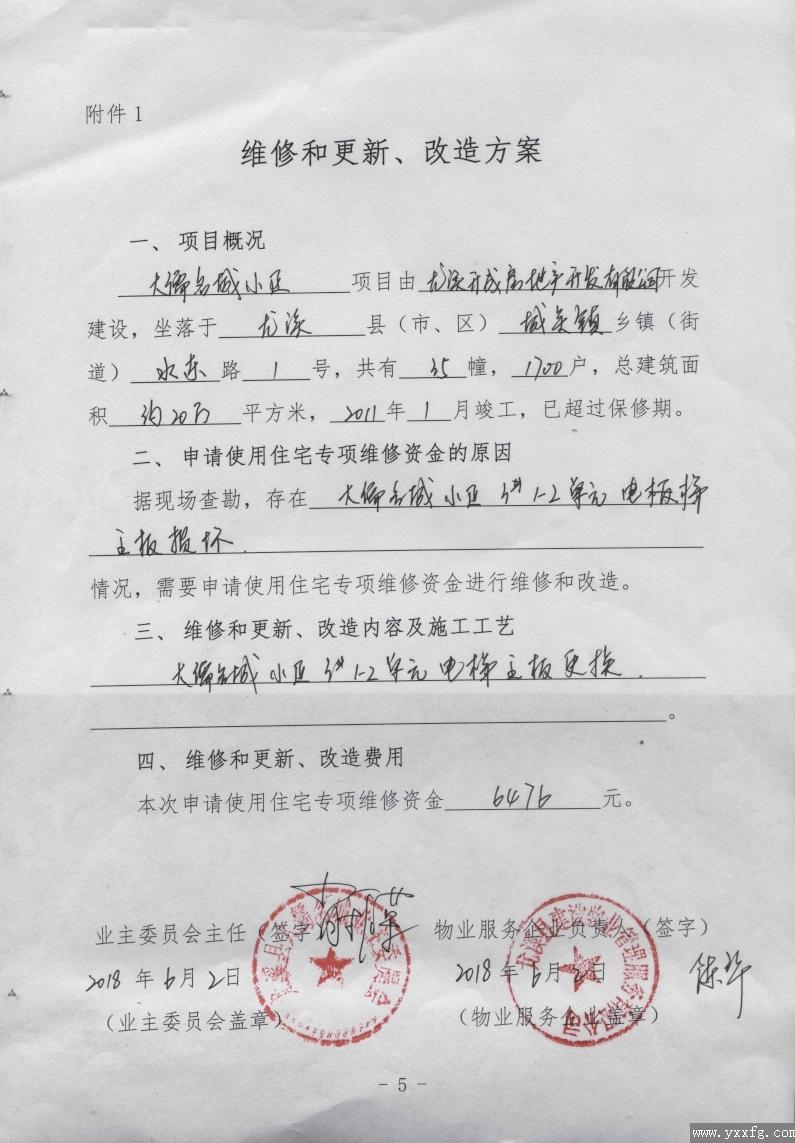 附件1
维修和更新、改造方案
一、项目概况
大儒名城小区 项目由尤溪开成房地产开发有限公司开发
建设，坐落于 尤溪 县（市、区） 城关镇 乡镇（街
道） 水东 路 1 号，共有 35 幢， 1700 户，总建筑面
积 约20万 平方米， 2011 年 1 月竣工，已超过保修期。
二、申请使用住宅专项维修资金的原因
据现场查勘，存在 大儒名城小区 1-2单元电板梯
主板损坏.
情况，需要申请使用住宅专项维修资金进行维修和改造。
三、维修和更新、改造内容及施工工艺
大儒名城小区 1-2单元电梯主板更换.
。
四、维修和更新、改造费用
本次申请使用住宅专项维修资金 6476 元。
业主委员会主任（签字） 物业服务企业负责人（签字）
2018年6月2日 2018年6月2日
（业主委员会盖章） （物业服务企业盖章）
- 5 -
www.yxxfg.com